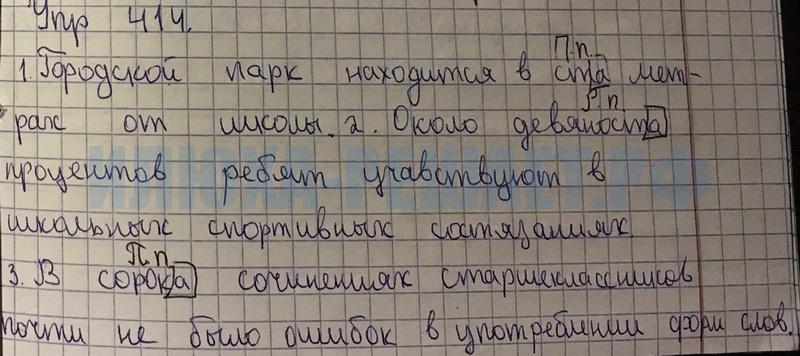 Упр 414.
П.п.
1. Городской парк находится в ста мет-
Р.п.
рах от школы. 2. Около девяноста
процентов ребят учавствуют в
школьных спортивных состязаниях
П.п.
3. В сорока сочинениях старшеклассников
почти не было ошибок в употреблении форм слов.